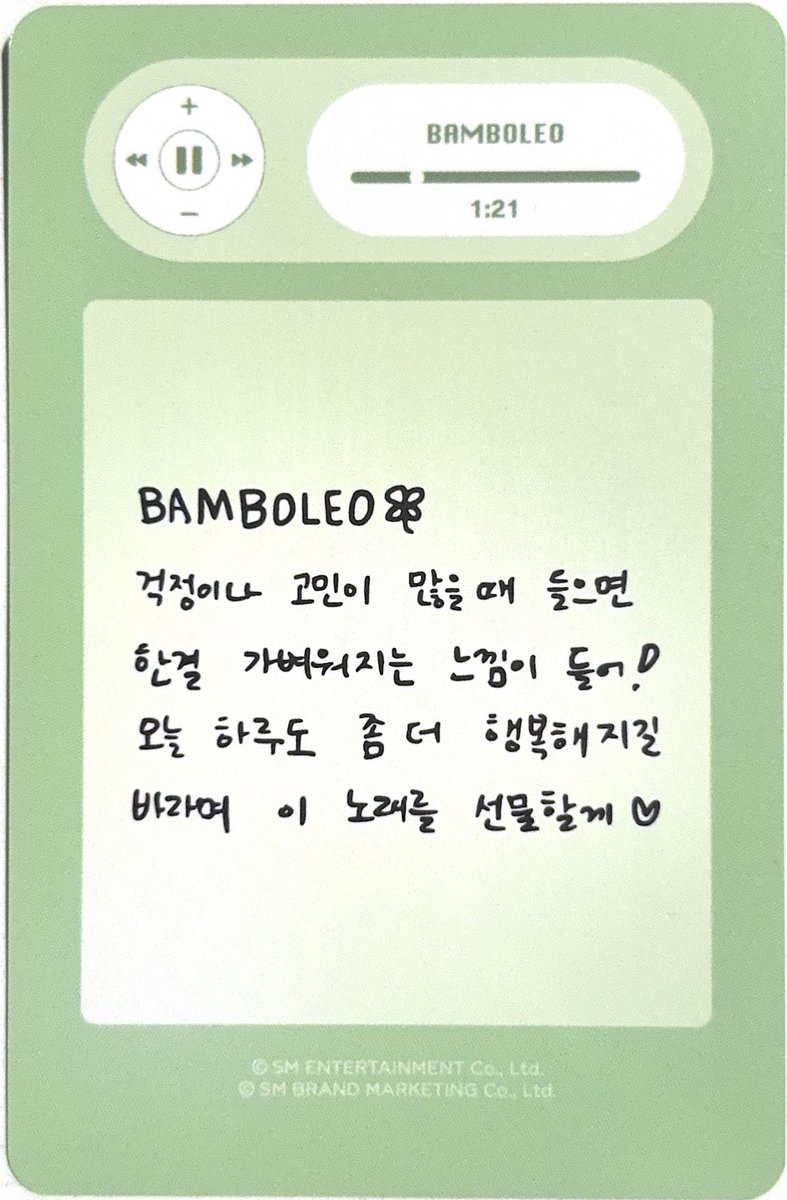 BAMBOLEO
1:21
BAMBOLEO
걱정이나 고민이 많을 때 들으면
한결 가벼워지는 느낌이 들어!
오늘 하루도 좀 더 행복해지길
바라며 이 노래를 선물할게 ♡
© SM ENTERTAINMENT Co., Ltd.
© SM BRAND MARKETING Co., Ltd.